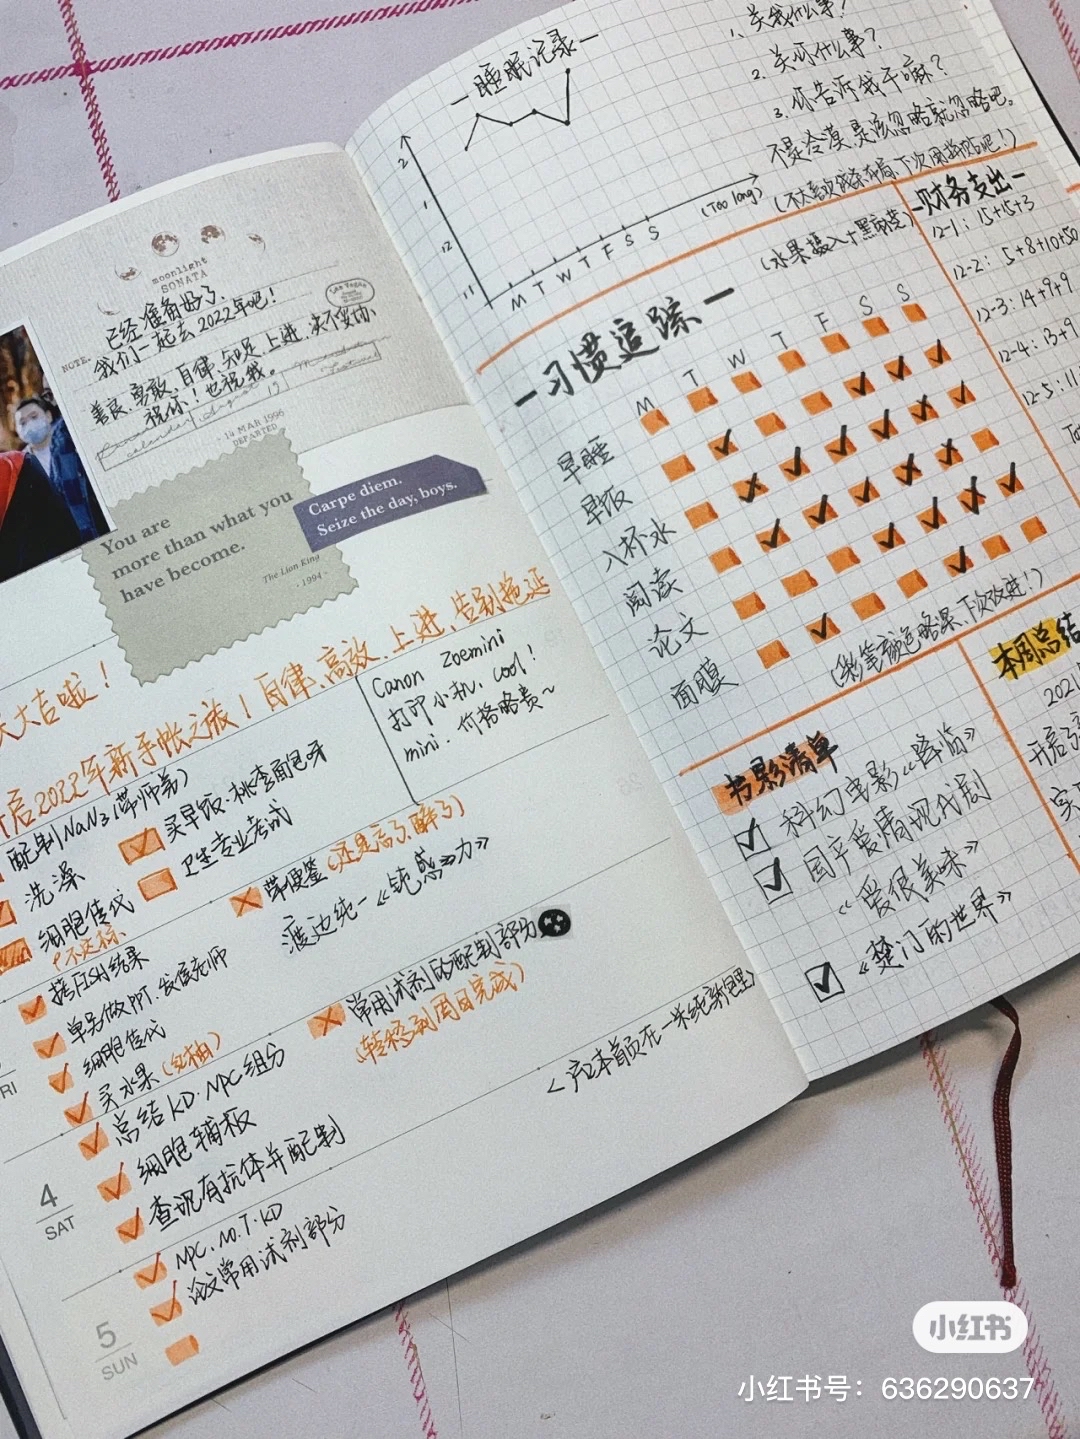 moonlight
SONATA
NOTE.
已经准备好了.
我们一起去2022年吧!
善良、勇敢、自律、知足、上进、决不妥协
祝你!也祝我。
calendar
14 MAR 1996
DEPARTED
You are
more than what you
have become.
The Lion King
- 1994 -
Carpe diem.
Seize the day, boys.
天大吉啦!
启2022年新手帐之旅!自律、高效、上进、告别拖延
Canon zoemini
打印小机, cool!
mini. 价格略贵~
配制NaN3(带师弟)
洗澡
买早饭·桃李面包呀
细胞传代
卫生专业考试
*不达标、
拷FISH结果
带便签(还是忘了,醉了)
单另做PPT、发俊老师
渡边纯一《钝感力》
细胞传代
买水果(红柚)
常用试剂的配制部分
(转移到周日完成)
总结KD·NPC组分
细胞铺板
查现有抗体并配制
<应本首页在一米纯新包里)
RI
4
SAT
NPC、NO.T·KD
论文常用试剂部分
5
SUN
-睡眠记录-
2
1
12
11
M T W T F S S
(Too long)
1、关我什么事?
2. 关你什么事?
3. 你告诉我干嘛?
不是冷漠,是该忽略就忽略吧。
(水果摄入+黑面包)
-财务支出-
12-1: 15+15+3
12-2: 5+8+10+50
12-3: 14+9+9
12-4: 13+9
12-5: 11
-习惯追踪-
M T W T F S S
早睡
早饭
八杯水
阅读
论文
面膜
(彩笔颜色略黑,下次改进!)
书影清单
科幻电影《降临》
国产爱情现代剧
《爱很美味》
《楚门的世界》
本周总结
2021
开启
小红书
小红书号:636290637